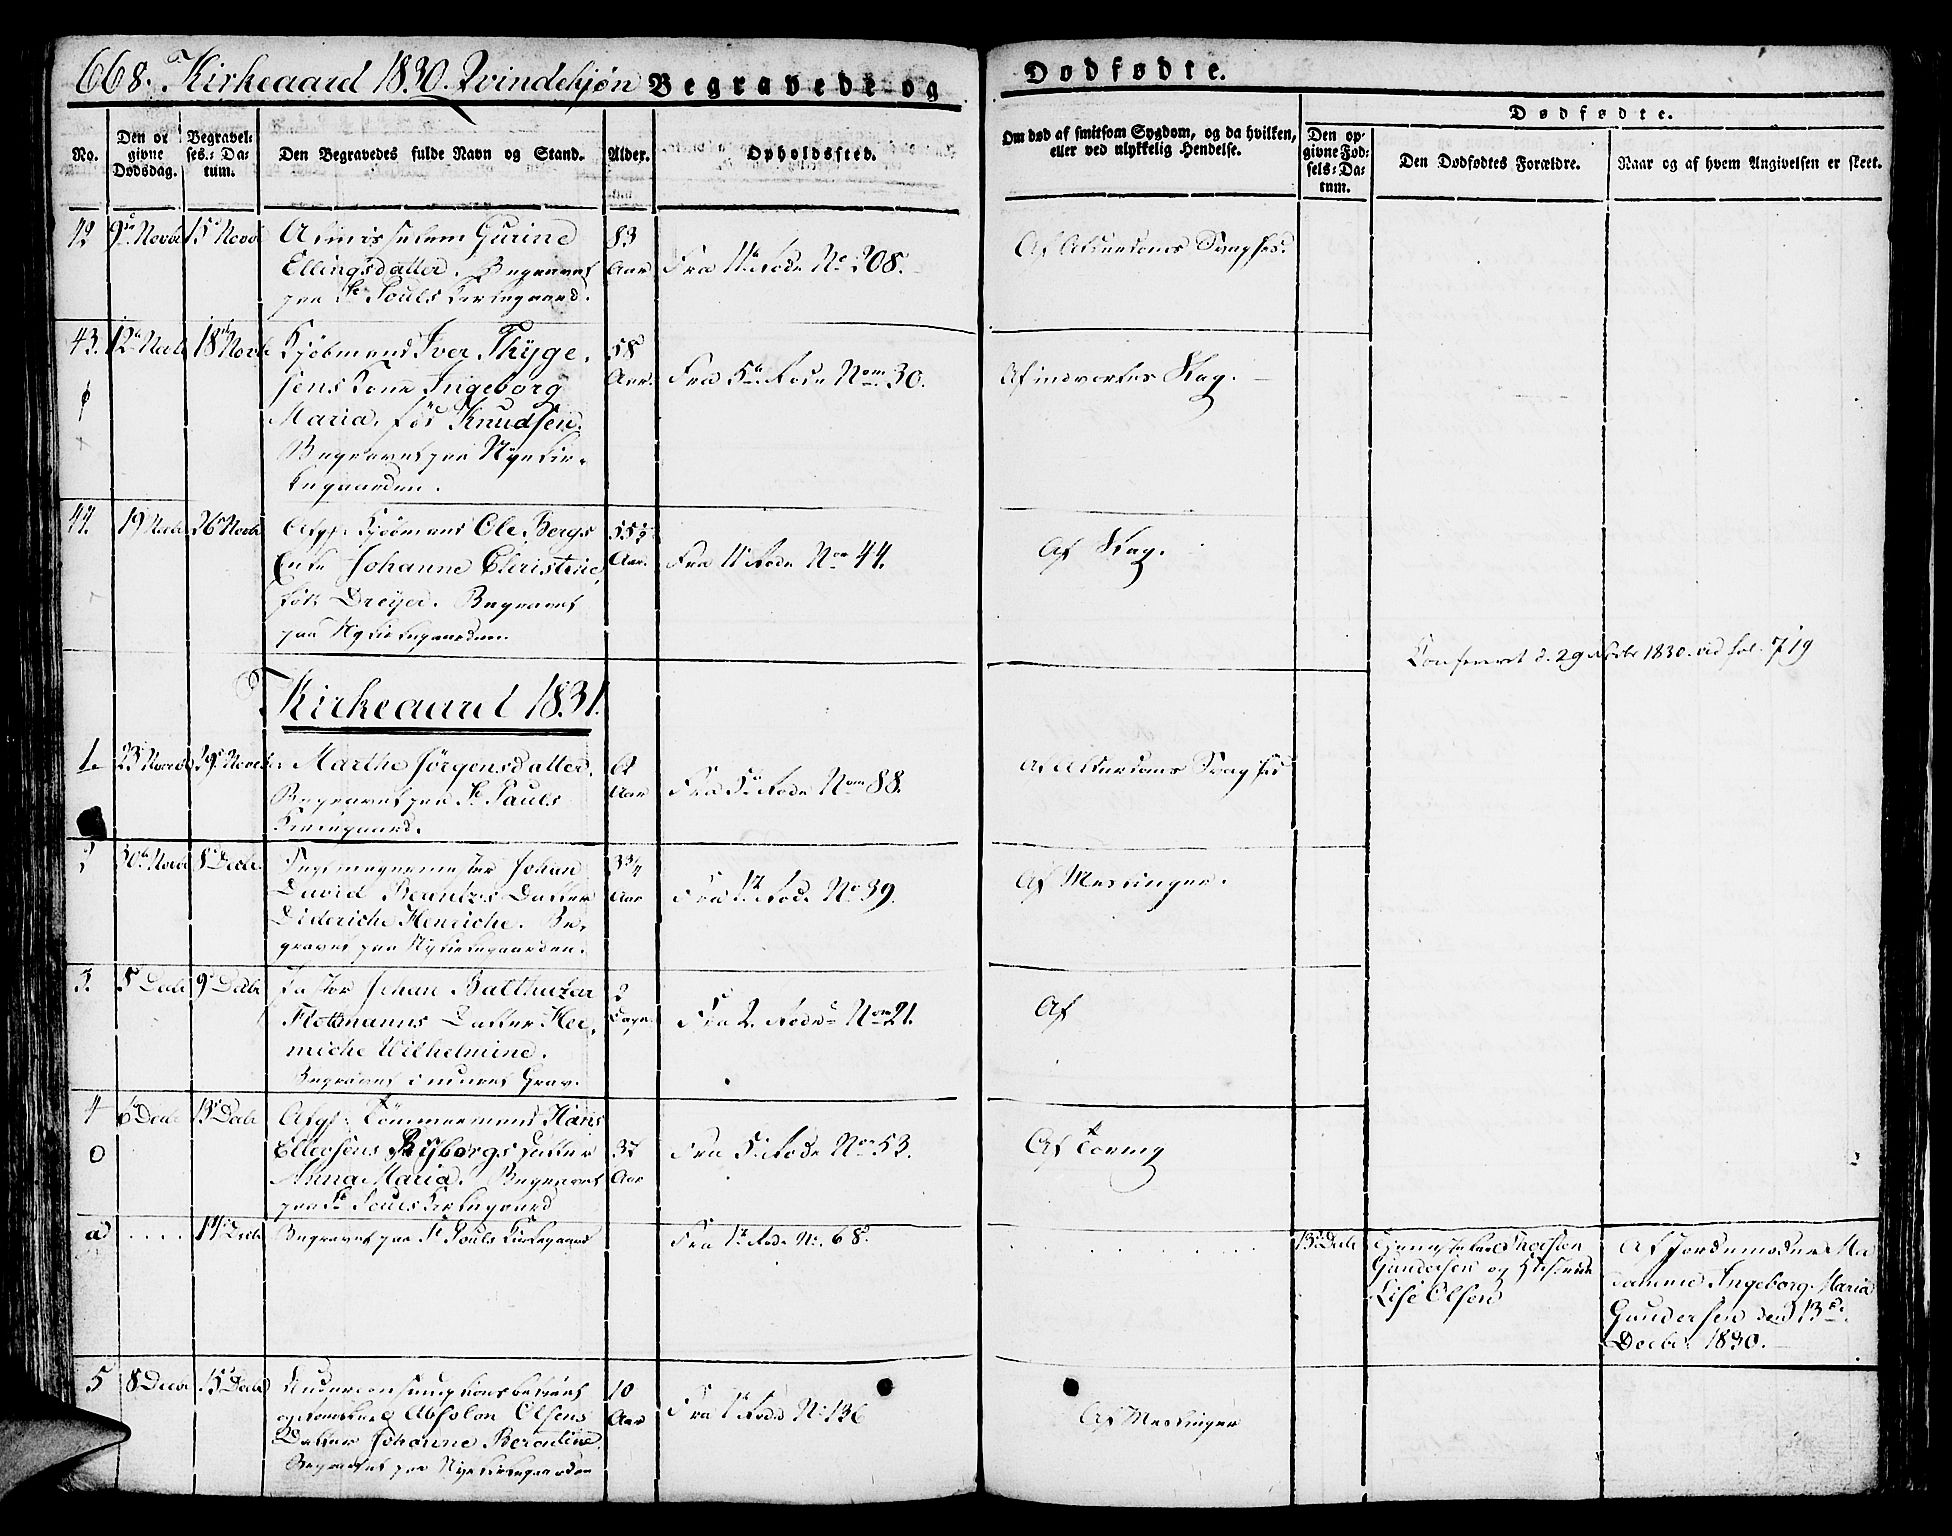 668. Kirkeaard 1830. Qvindekjøn Begravede og Dødfødte.
No.
Den opgivne Dødsdag.
Begravelses-Datum.
Den Begravedes fulde Navn og Stand.
Alder.
Opholdssted.
Om død af smitsom Sygdom, og da hvilken,
eller ved ulykkelig Hendelse.
Dødfødte.
Den opgivne Fødsels-Datum.
Den Dødfødtes Forældre.
Naar og af hvem Angivelsen er skeet.
42 9de Novbr 15 Novbr
Almisselem Gurine
Ellingsdatter. Begravet
paa St Pouls Kirkegaard.
83
Aar
Fra 11te Rode No 208.
Af Alderdoms Svaghed.
43. 12 Novbr 18de Novbr
Kjøbmand Iver Thyge-
sens Kone Ingeborg
Maria, fød Knudsen.
Begravet paa Nye Kir-
kegaarden.
58
Aar.
Fra 5te Rode Nom 30.
Af indvortes Slag.
44. 19 Novbr 26 Novbr
Afg: Kjøbmand Ole Bergs
Enke Johanne Christine,
fød Dreyer. Begravet
paa Nykirkegaarden.
55½
Aar.
Fra 11te Rode Nom 44.
Af Slag.
Confereret d. 29 Novbr 1830 ved fol. 719
Kirkeaaret 1831.
1. 23 Novbr 29 Novbr
Marthe Jörgensdatter.
Begravet paa St Pauls
Kirkegaard.
Aar
Fra 5te Rode Nom 88.
Af Alderdoms Svaghed
2 30te Novbr 8 Decbr
Johan
David Datter
Dideriche Henriche. Be-
gravet paa Nykirkegaarden.
3¾
Aar
Fra 1te Rode No 39.
Af Meslinger.
3. 5 Decbr 9 Decbr
Pastor Johan Balthazar
Flottmanns Datter Hen-
riche Wilhelmine.
Begravet i muret Grav.
2
Dage
Fra 2. Rode Nom 21.
Af
4 6te Decbr 13 Decbr
Afg: Tömmermand Hans
Ellersens Rÿborgs Datter
Anna Maria. Begravet
paa St Pouls Kirkegaard
32
Aar
Fra 5te Rode Nom 53.
Af Tæring
a) .... 17 Decbr
Begravet paa St Pouls Kirkegaard
Fra 1te Rode No. 68.
13 Decbr
Thorsten
Gundersen og Hustrue
Lise Olsen
Af Jordemoder Ma-
damme Ingeborg Maria
Gundersen den 13de
Decbr 1830.
5 8 Decbr 15 Decbr
Underconsumptionsbetient
Absolon Olsens
Datter Johanne Berentine.
Begravet paa Nyekirkegaarden
10
Aar
Fra 1te Rode No 136
Af Meslinger